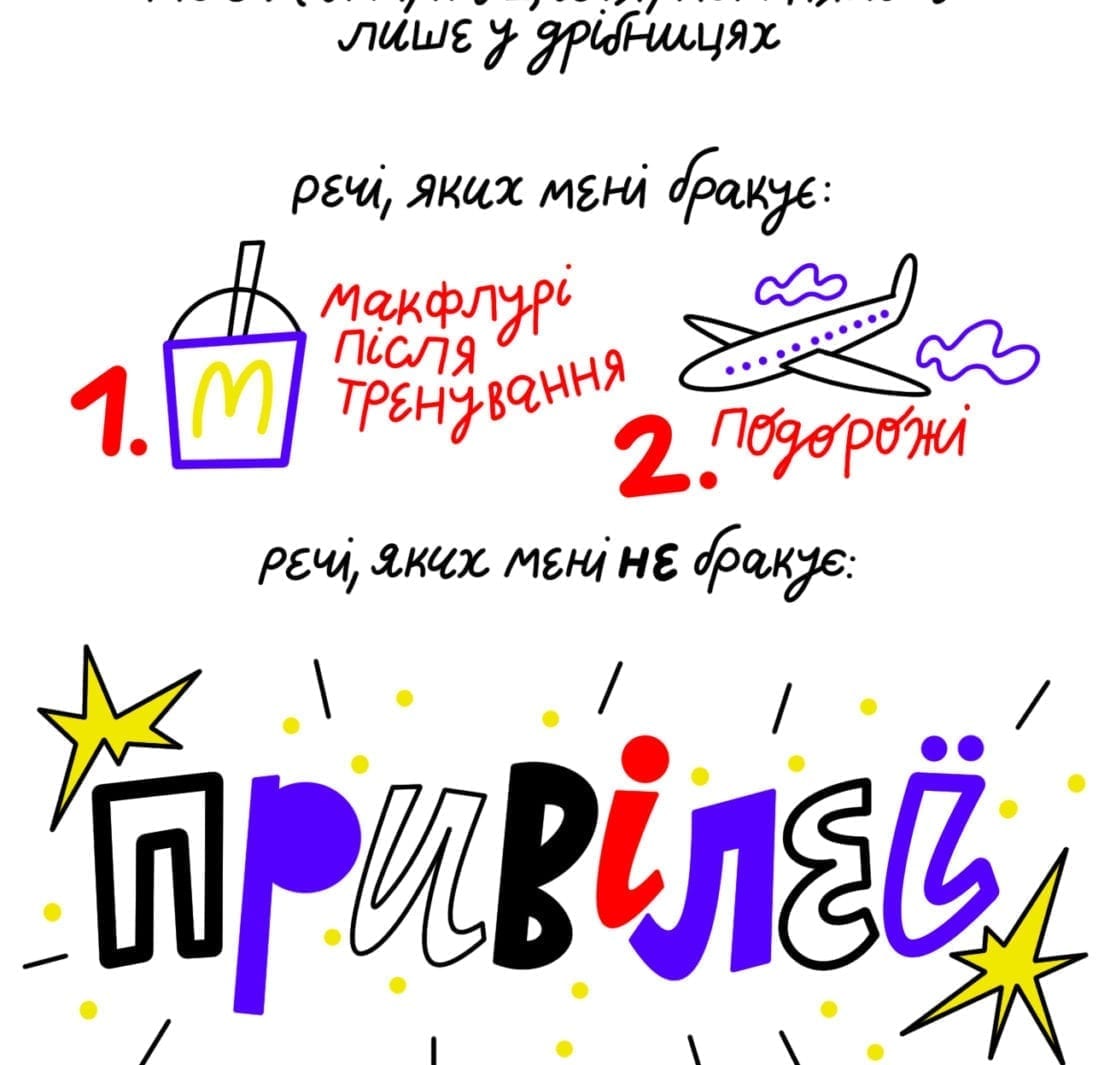 лише у дрібницях
речі, яких мені бракує:
1.
M
макфлурі
після
тренування
2. подорожі
речі, яких мені не бракує:
привілеї